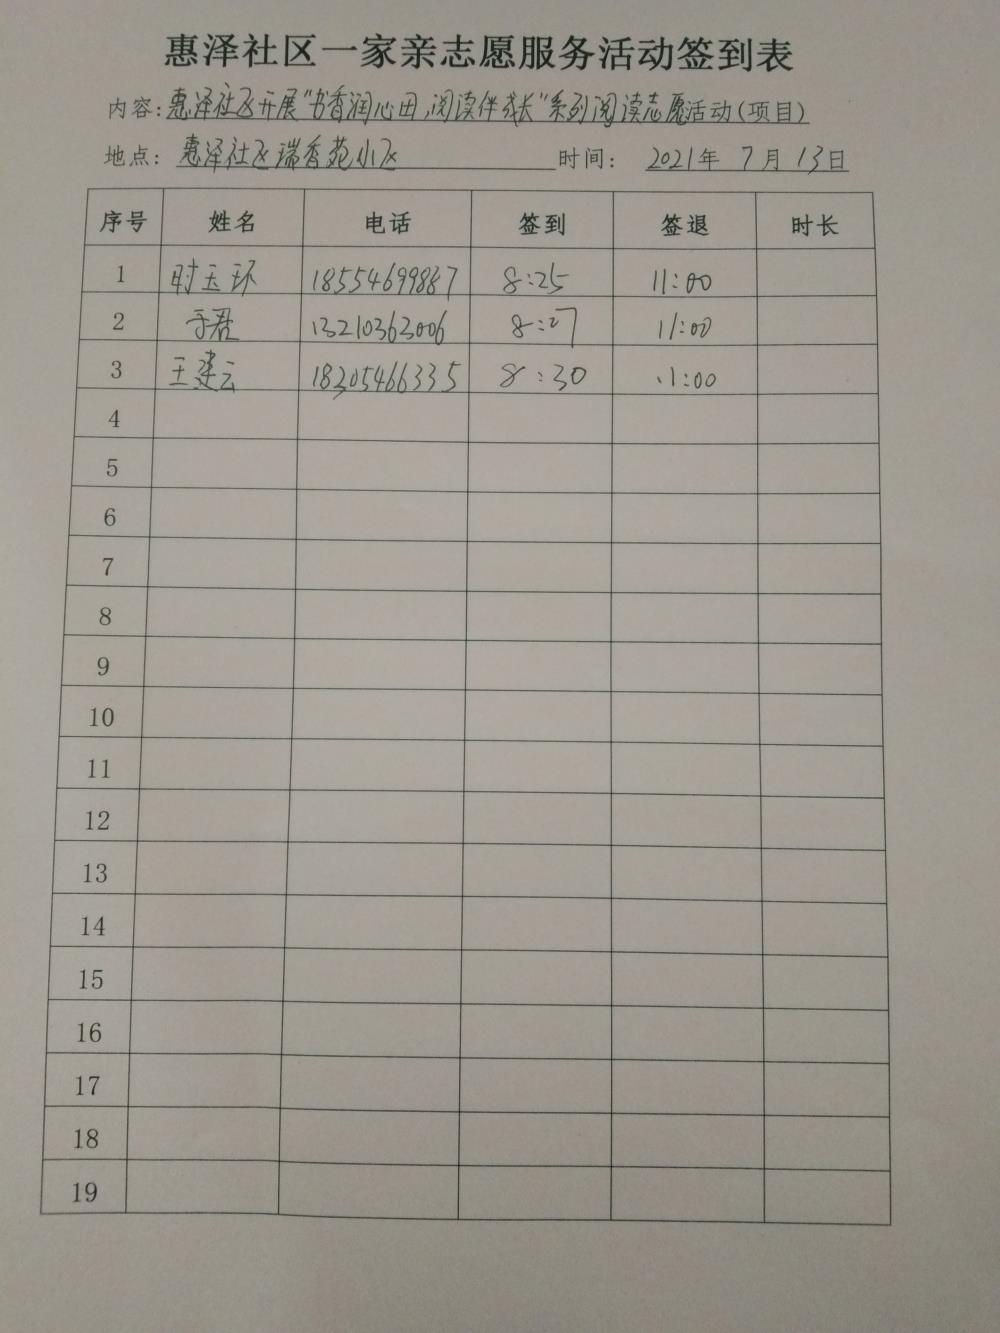 惠泽社区一家亲志愿服务活动签到表
内容:惠泽社区开展“书香润心田,阅读伴成长”系列阅读志愿活动(项目)
地点: 惠泽社区瑞香苑小区 时间: 2021年 7月 13日
序号 姓名 电话 签到 签退 时长
1 时玉环 18554699887 8:25 11:00
2 于君 13210363006 8:27 11:00
3 王建云 18305466335 8:30 11:00
4
5
6
7
8
9
10
11
12
13
14
15
16
17
18
19